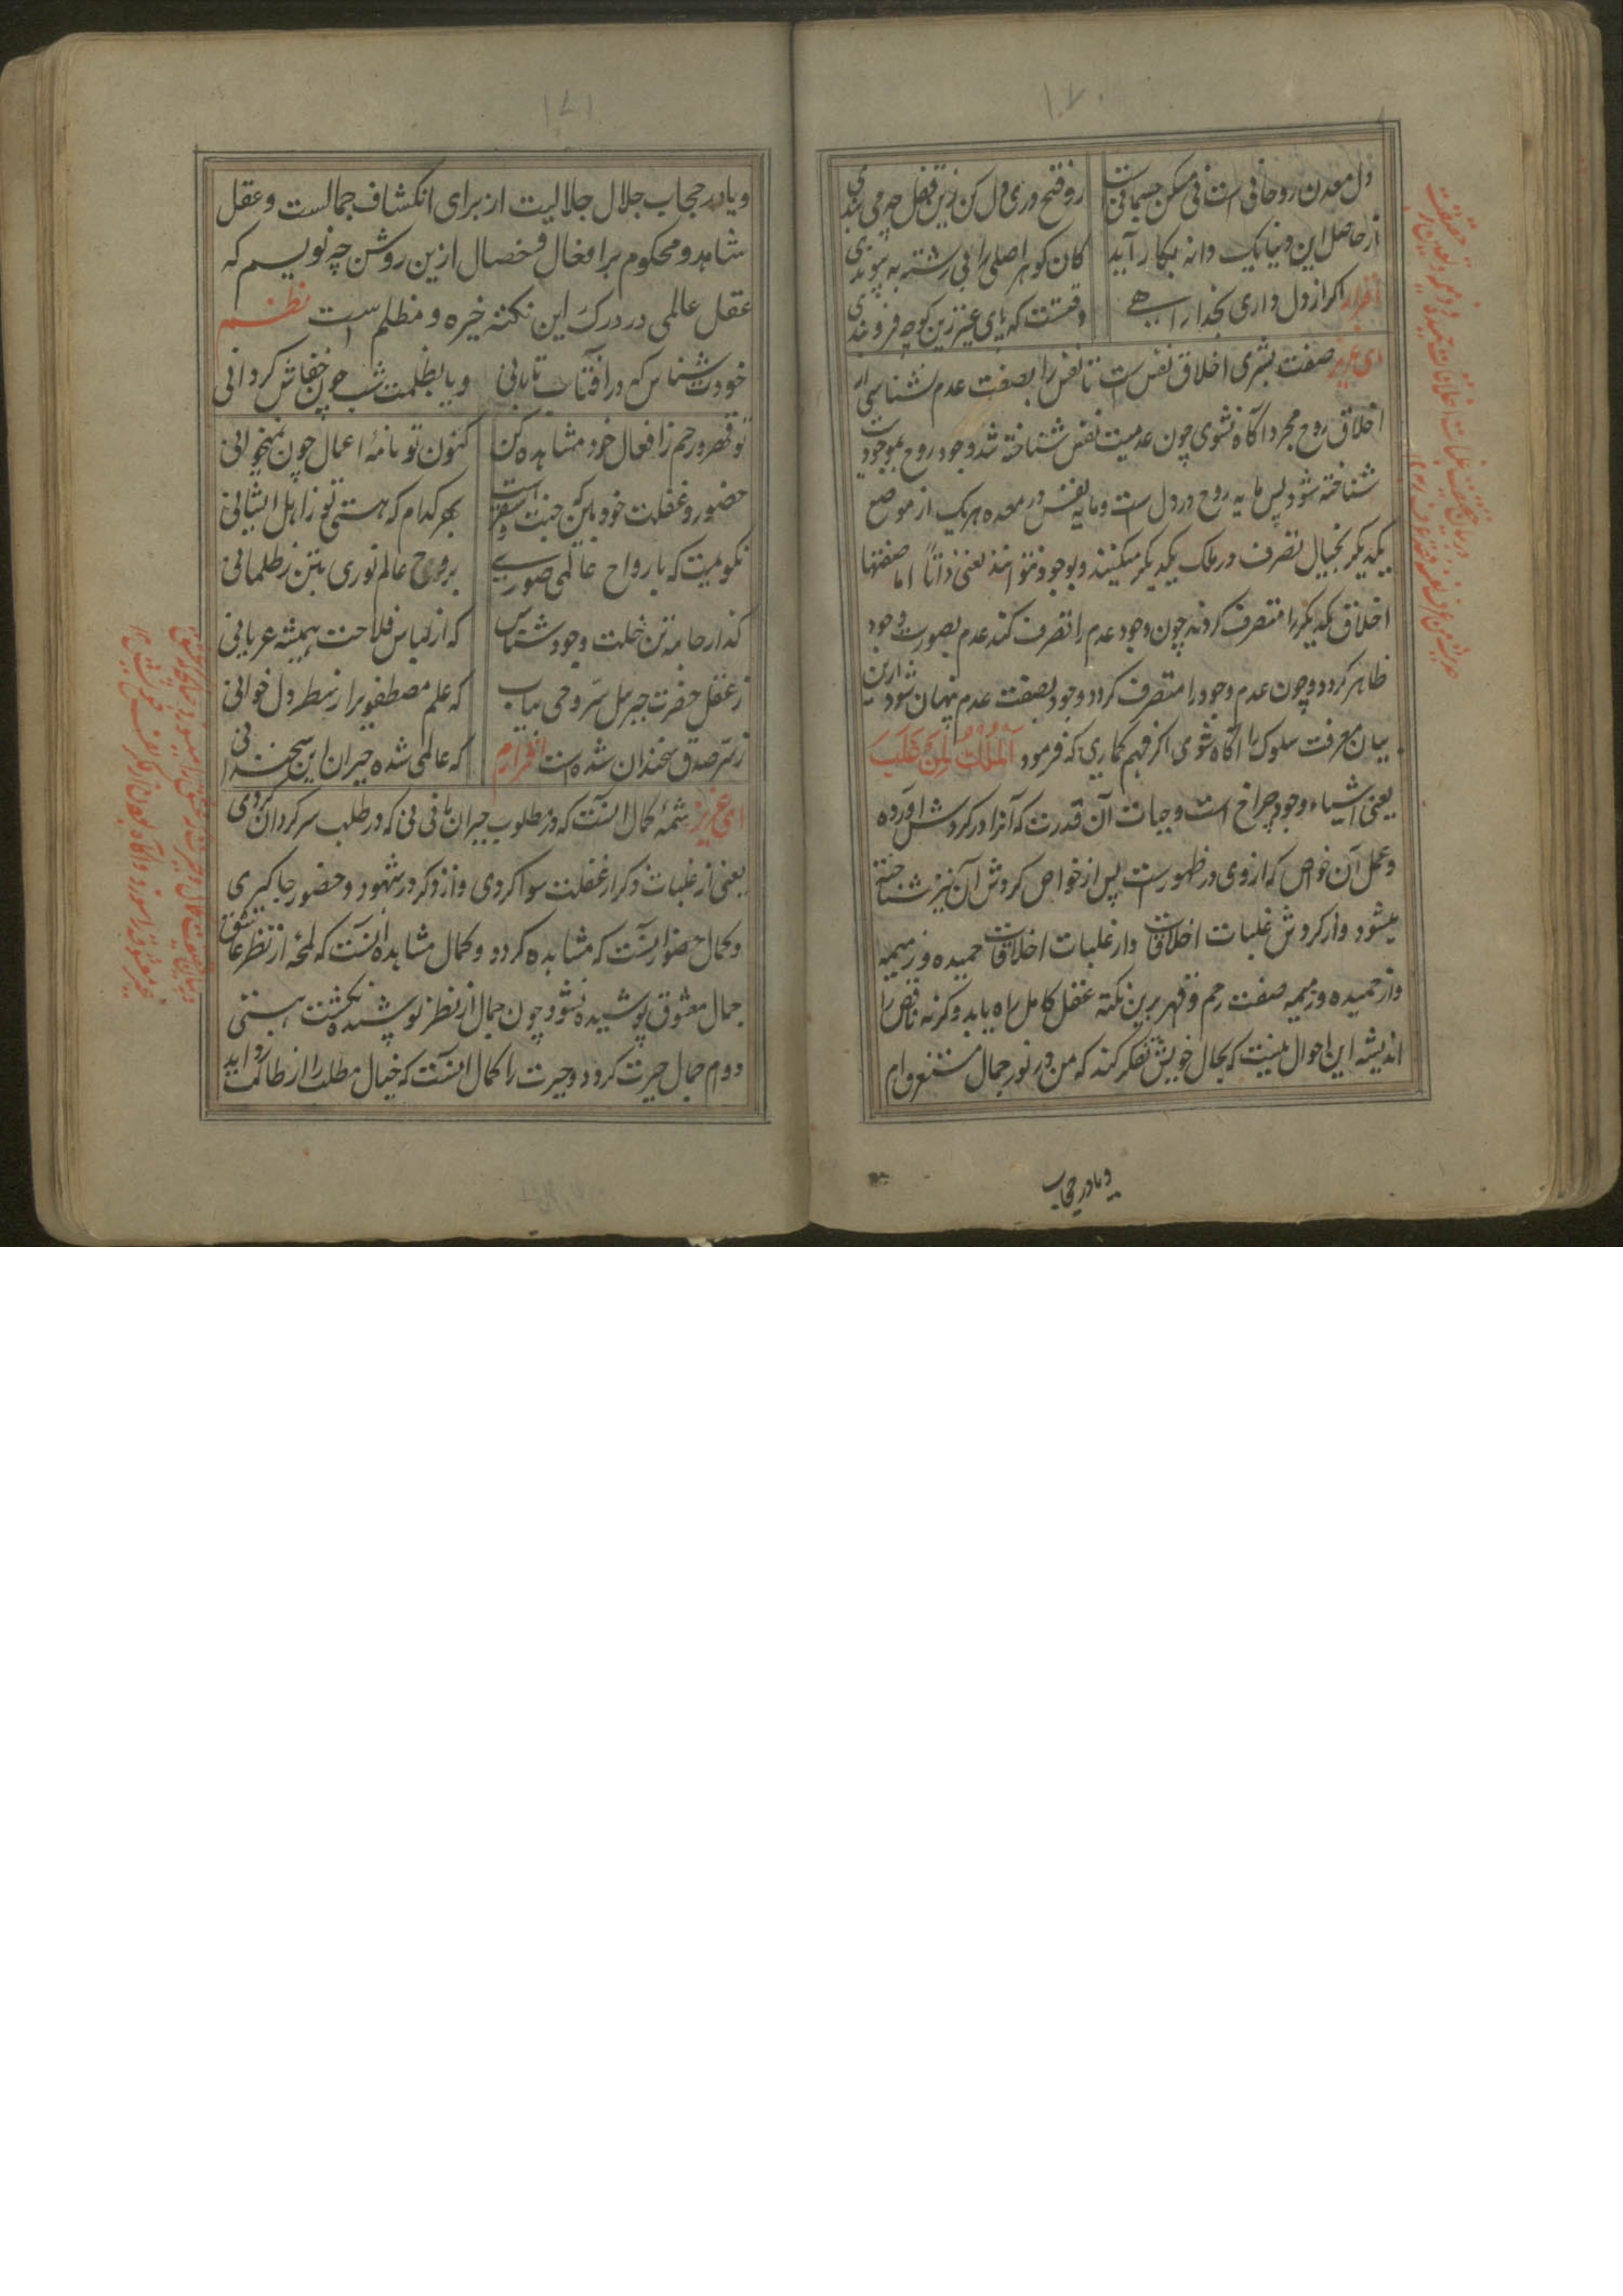 ۱۷۰
دل معدن روحانی است نی مسکن جسمانی رو فتح دری دل کن زین قفل چه می بندی
از حاصل این دنیا یک دانه بکار آید کان کوهر اصلی را بی رشته به پیوندی
اقرار اکر از دل داری بخدا راهے وقتست که پای عینی زین کوچه فرو بندی
ای عزیز صفت بشری اخلاق نفس است تا نفس را بصفت عدم نشناسی از
اخلاق روح مجرد آکاه نشوی چون عدمیت نفس شناخته شد وجود روح بموجودیت
شناخته شود پس مایه روح در دل است و مایه نفس در معده هر یک از موضع
یکدیکر بخیال تصرف در ملک یکدیکر میکنند و بوجود نتوانند یعنی ذاتاً اما صفتها
اخلاق یکدیکر را متصرف کردند چون وجود عدم را تصرف کند عدم بصورت وجود
ظاهر کردد و چون عدم وجود را متصرف کردد وجود بصفت عدم پنهان شود از این
بیان معرفت سلوک را آکاه شوی اکر فهم کماری که فرمود اَلْمُلْکُ لِمَنْ غَلَبَ
یعنی اشیاء وجود چراغ است و حیات آن قدرت که آنرا در کردش آورده
و عمل آن خواص که از وی در ظهورست پس از خواص کردش آن نیز شناخته
میشود و از کردش غلبات اخلاقات و از غلبات اخلاقات حمیده و زمیمه
و از حمیده و زمیمه صفت رحم و قهر برین نکته عقل کامل راه یابد و کرنه ناقص را
اندیشه این احوال نیست که بحال خویش تفکر کند که من در نور جمال مستغرق ام
و یا در حجاب
۱۷۱
و یا در حجاب جلال جلالیت از برای انکشاف جمالست و عقل
شاهد و محکوم بر افعال و خصال ازین روشن چه نویسم که
عقل عالمی در درک این نکته خیره و مظلم است نظم
خودت شناس که در آفتاب تابانی و یا بظلمت شب چون خفاش کردانی
تو قهر و رحم ز افعال خود مشاهده کن کنون تو نامهٔ اعمال چون نمیخوانی
حضور و غفلت خود بین که جنت است و سقر بهر کدام که هستی تو ز اهل ایشانی
نکو میت که بارواح عالمی صورے بروح عالم نوری بتن ز ظلمانی
کذار جامه تن خلت وجود شناس که از لباس فلاحت همیشه عریانی
ز عقل حضرت جبرئیل سر وحی بیاب که علم مصطفوی را ز سطر دل خوانی
ز سر صدق سخندان شده است اقرارم که عالمی شده حیران این سخندانی
ای عزیز شمهٔ کمال آنست که در مطلوب حیران مانی نی که در طلب سرکردان کردی
یعنی از غلبات ذکر از غفلت سوا کردی و از ذکر در شهود و حضور جا کیری
و کمال حضور آنست که مشاهده کردد و کمال مشاهده آنست که لمحهٔ از نظر عاشق
جمال معشوق پوشیده نشود چون جمال از نظر پوشیده نکشت هستی
دوم جمال حیرت کردد و حیرت را کمال آنست که خیال مطلب را از طالب رباید